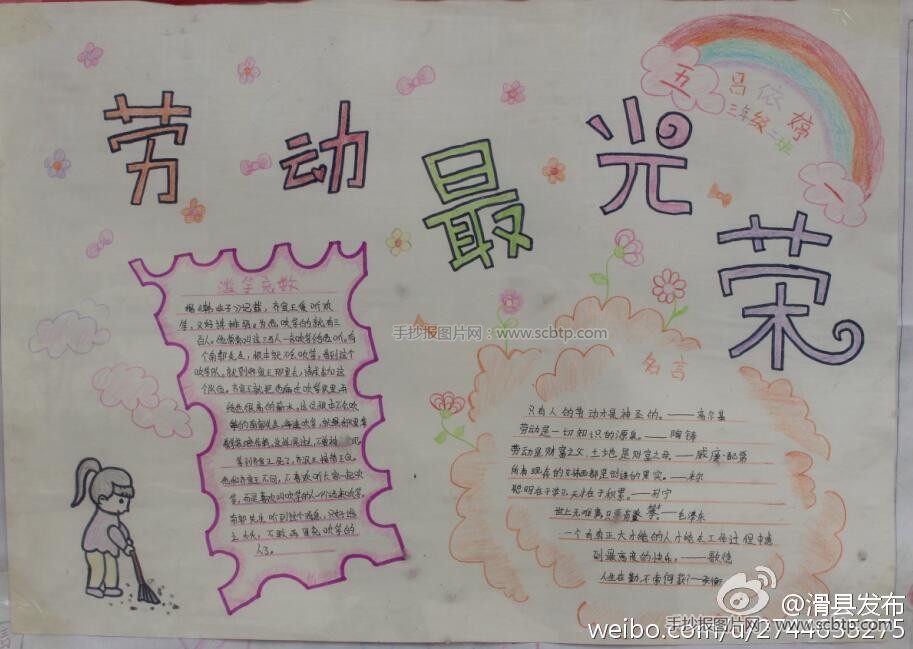 劳动最光荣
五一
吕依婷
三年级二班
滥竽充数
据《韩非子》记载，齐宣王爱听吹
竽，又好讲排场，为他吹竽的就有三
百人。他常常叫这三百人一齐吹竽给他听。有
个南郭先生，根本就不会吹竽，看到这个
吹竽队，就到齐宣王那里去，请求参加这
个队伍。齐宣王就把他编在吹竽队里，并
给他很高的薪水，这位根本不会吹
竽的南郭先生，每逢吹竽，
等到齐宣王死了，齐湣王接替王位。
他和齐宣王不同，不喜欢听大家一起吹
竽，而是喜欢叫吹竽的人一个个
南郭先生听到这个消息，只好
名言
只有人的劳动才是神圣的。——高尔基
劳动是一切知识的源泉。——陶铸
劳动是财富之父，土地是财富之母。——威廉·配第
所有现存的好东西都是创造的果实。——米尔
聪明在于学习，天才在于积累。——列宁
世上无难事，只要肯登攀。——毛泽东
一个有真正大才能的人才能在工作过程中感
到最高度的快乐。——歌德
人生在勤，不索何获？——张衡
手抄报图片网 www.scbtp.com
手抄报图片网 www.scbtp.com
@滑县发布
weibo.com/u/2744638275